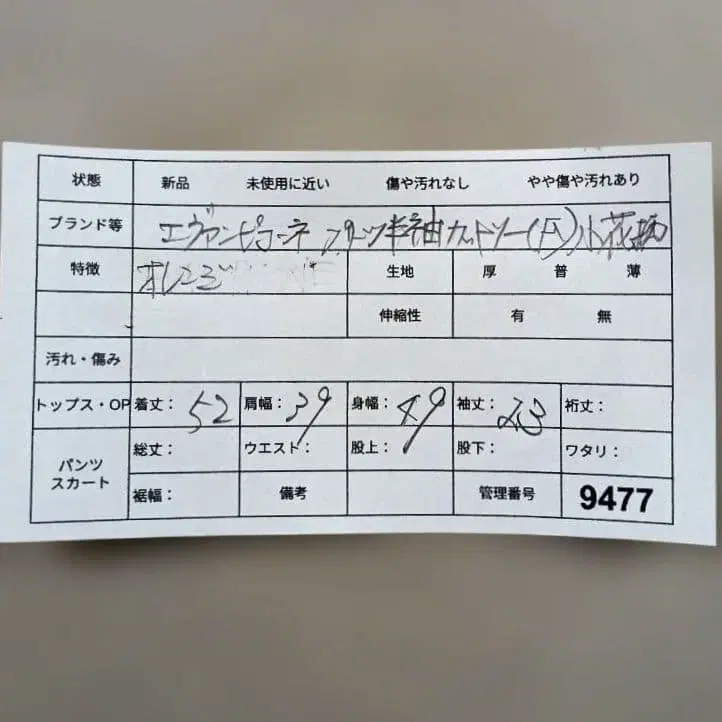 状態 新品 未使用に近い 傷や汚れなし やや傷や汚れあり
ブランド等 エヴァンピコーネ プリーツ半袖カットソー 小花柄
特徴 オレンジ 生地 厚 普 薄
伸縮性 有 無
汚れ・傷み
トップス・OP 着丈: 52 肩幅: 39 身幅: 49 袖丈: 23 裄丈:
パンツ スカート 総丈: ウエスト: 股上: 股下: ワタリ:
裾幅: 備考 管理番号 9477